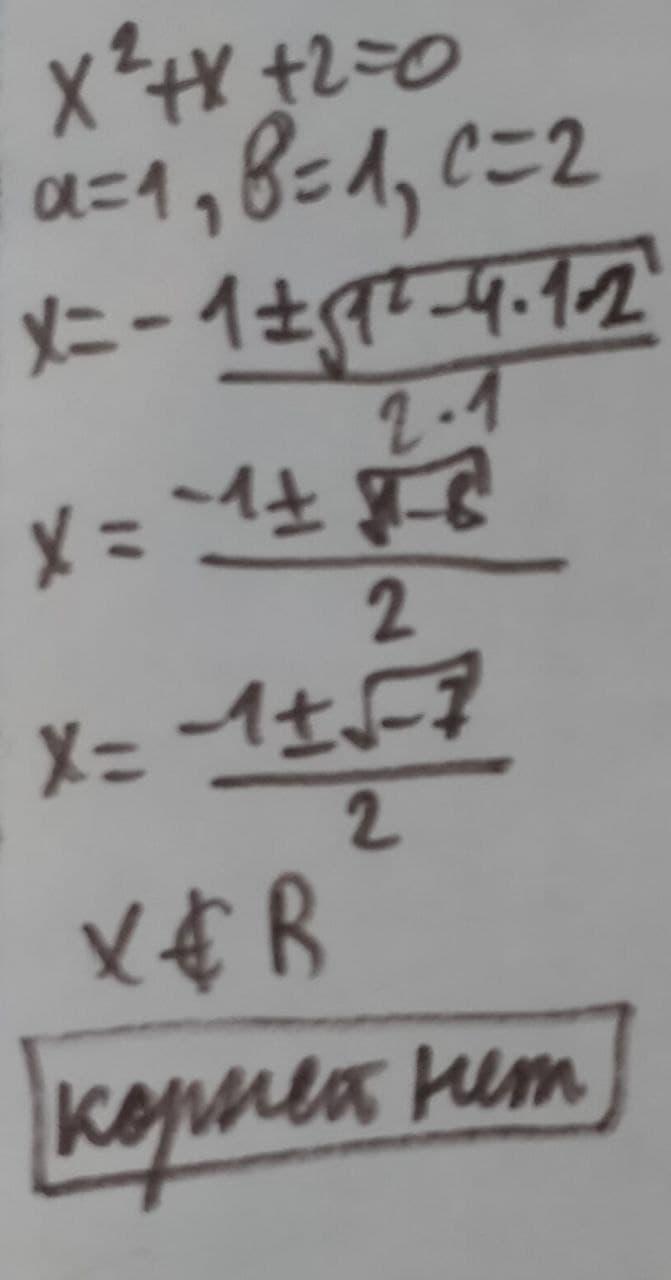 x²+x+2=0
a=1, b=1, c=2
x=-1±√1²-4·1·2
2·1
x= -1±√1-8
2
x= -1±√-7
2
x∉R
корней нет